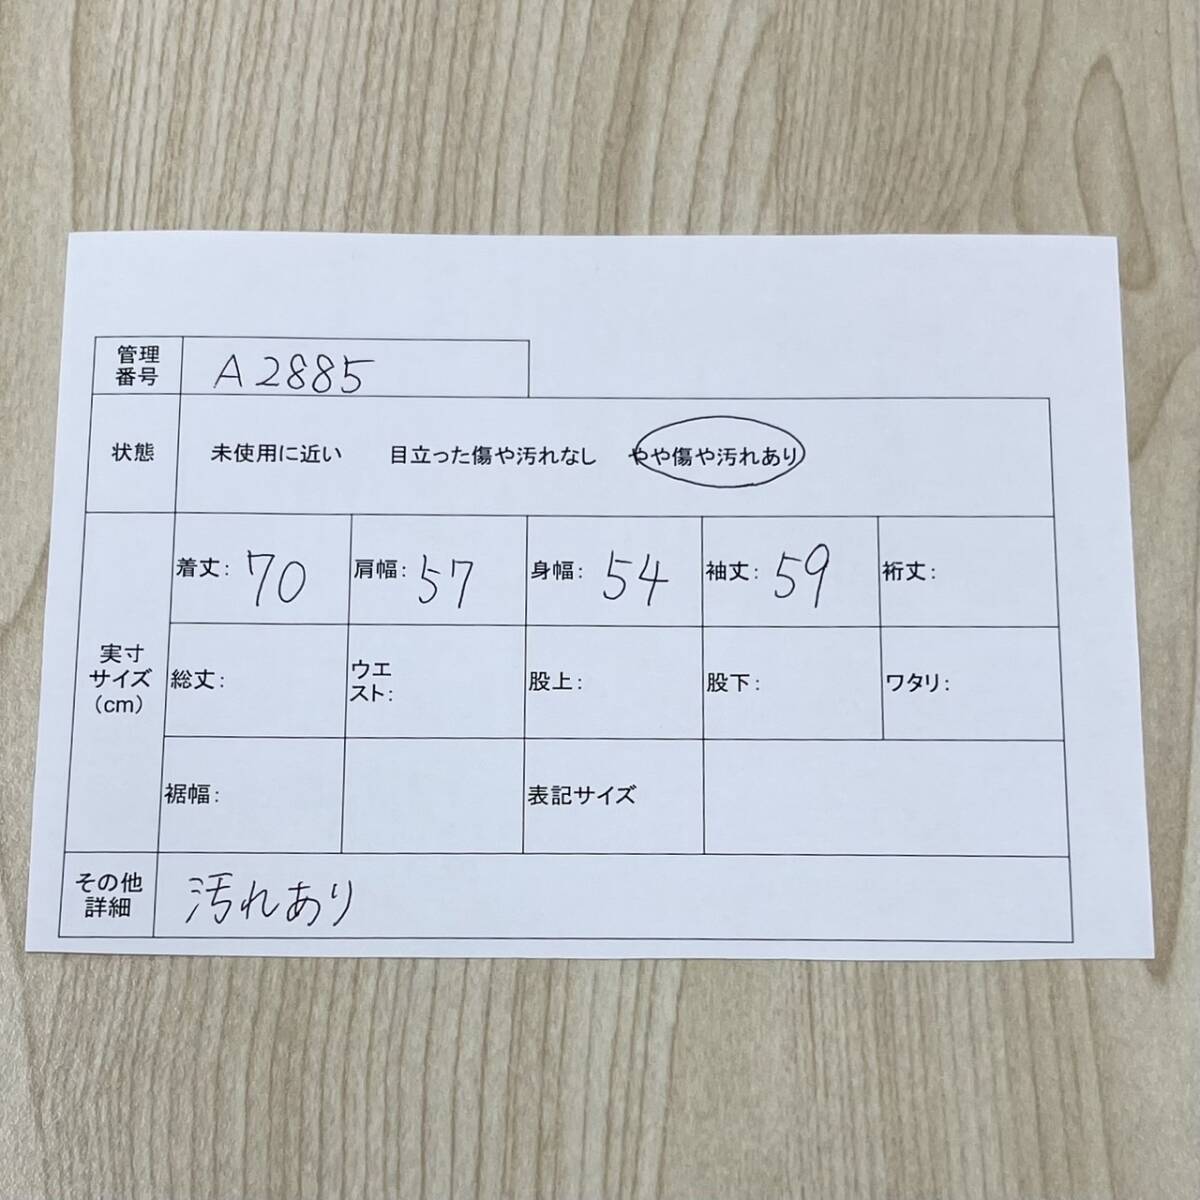 管理
番号
A2885
状態
未使用に近い 目立った傷や汚れなし やや傷や汚れあり
実寸
サイズ
(cm)
着丈: 70 肩幅: 57 身幅: 54 袖丈: 59 裄丈:
総丈: ウエ
スト: 股上: 股下: ワタリ:
裾幅: 表記サイズ
その他
詳細
汚れあり